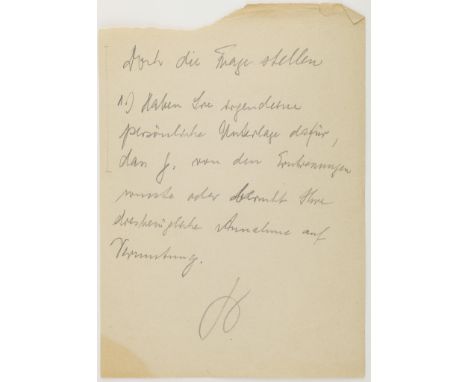 Doch die Frage stellen
1.) Haben Sie irgendeine
persönliche Unterlage dafür,
dass J. von den Ermordungen
wusste oder beruht Ihre
diesbezügliche Annahme auf
Vermutung.